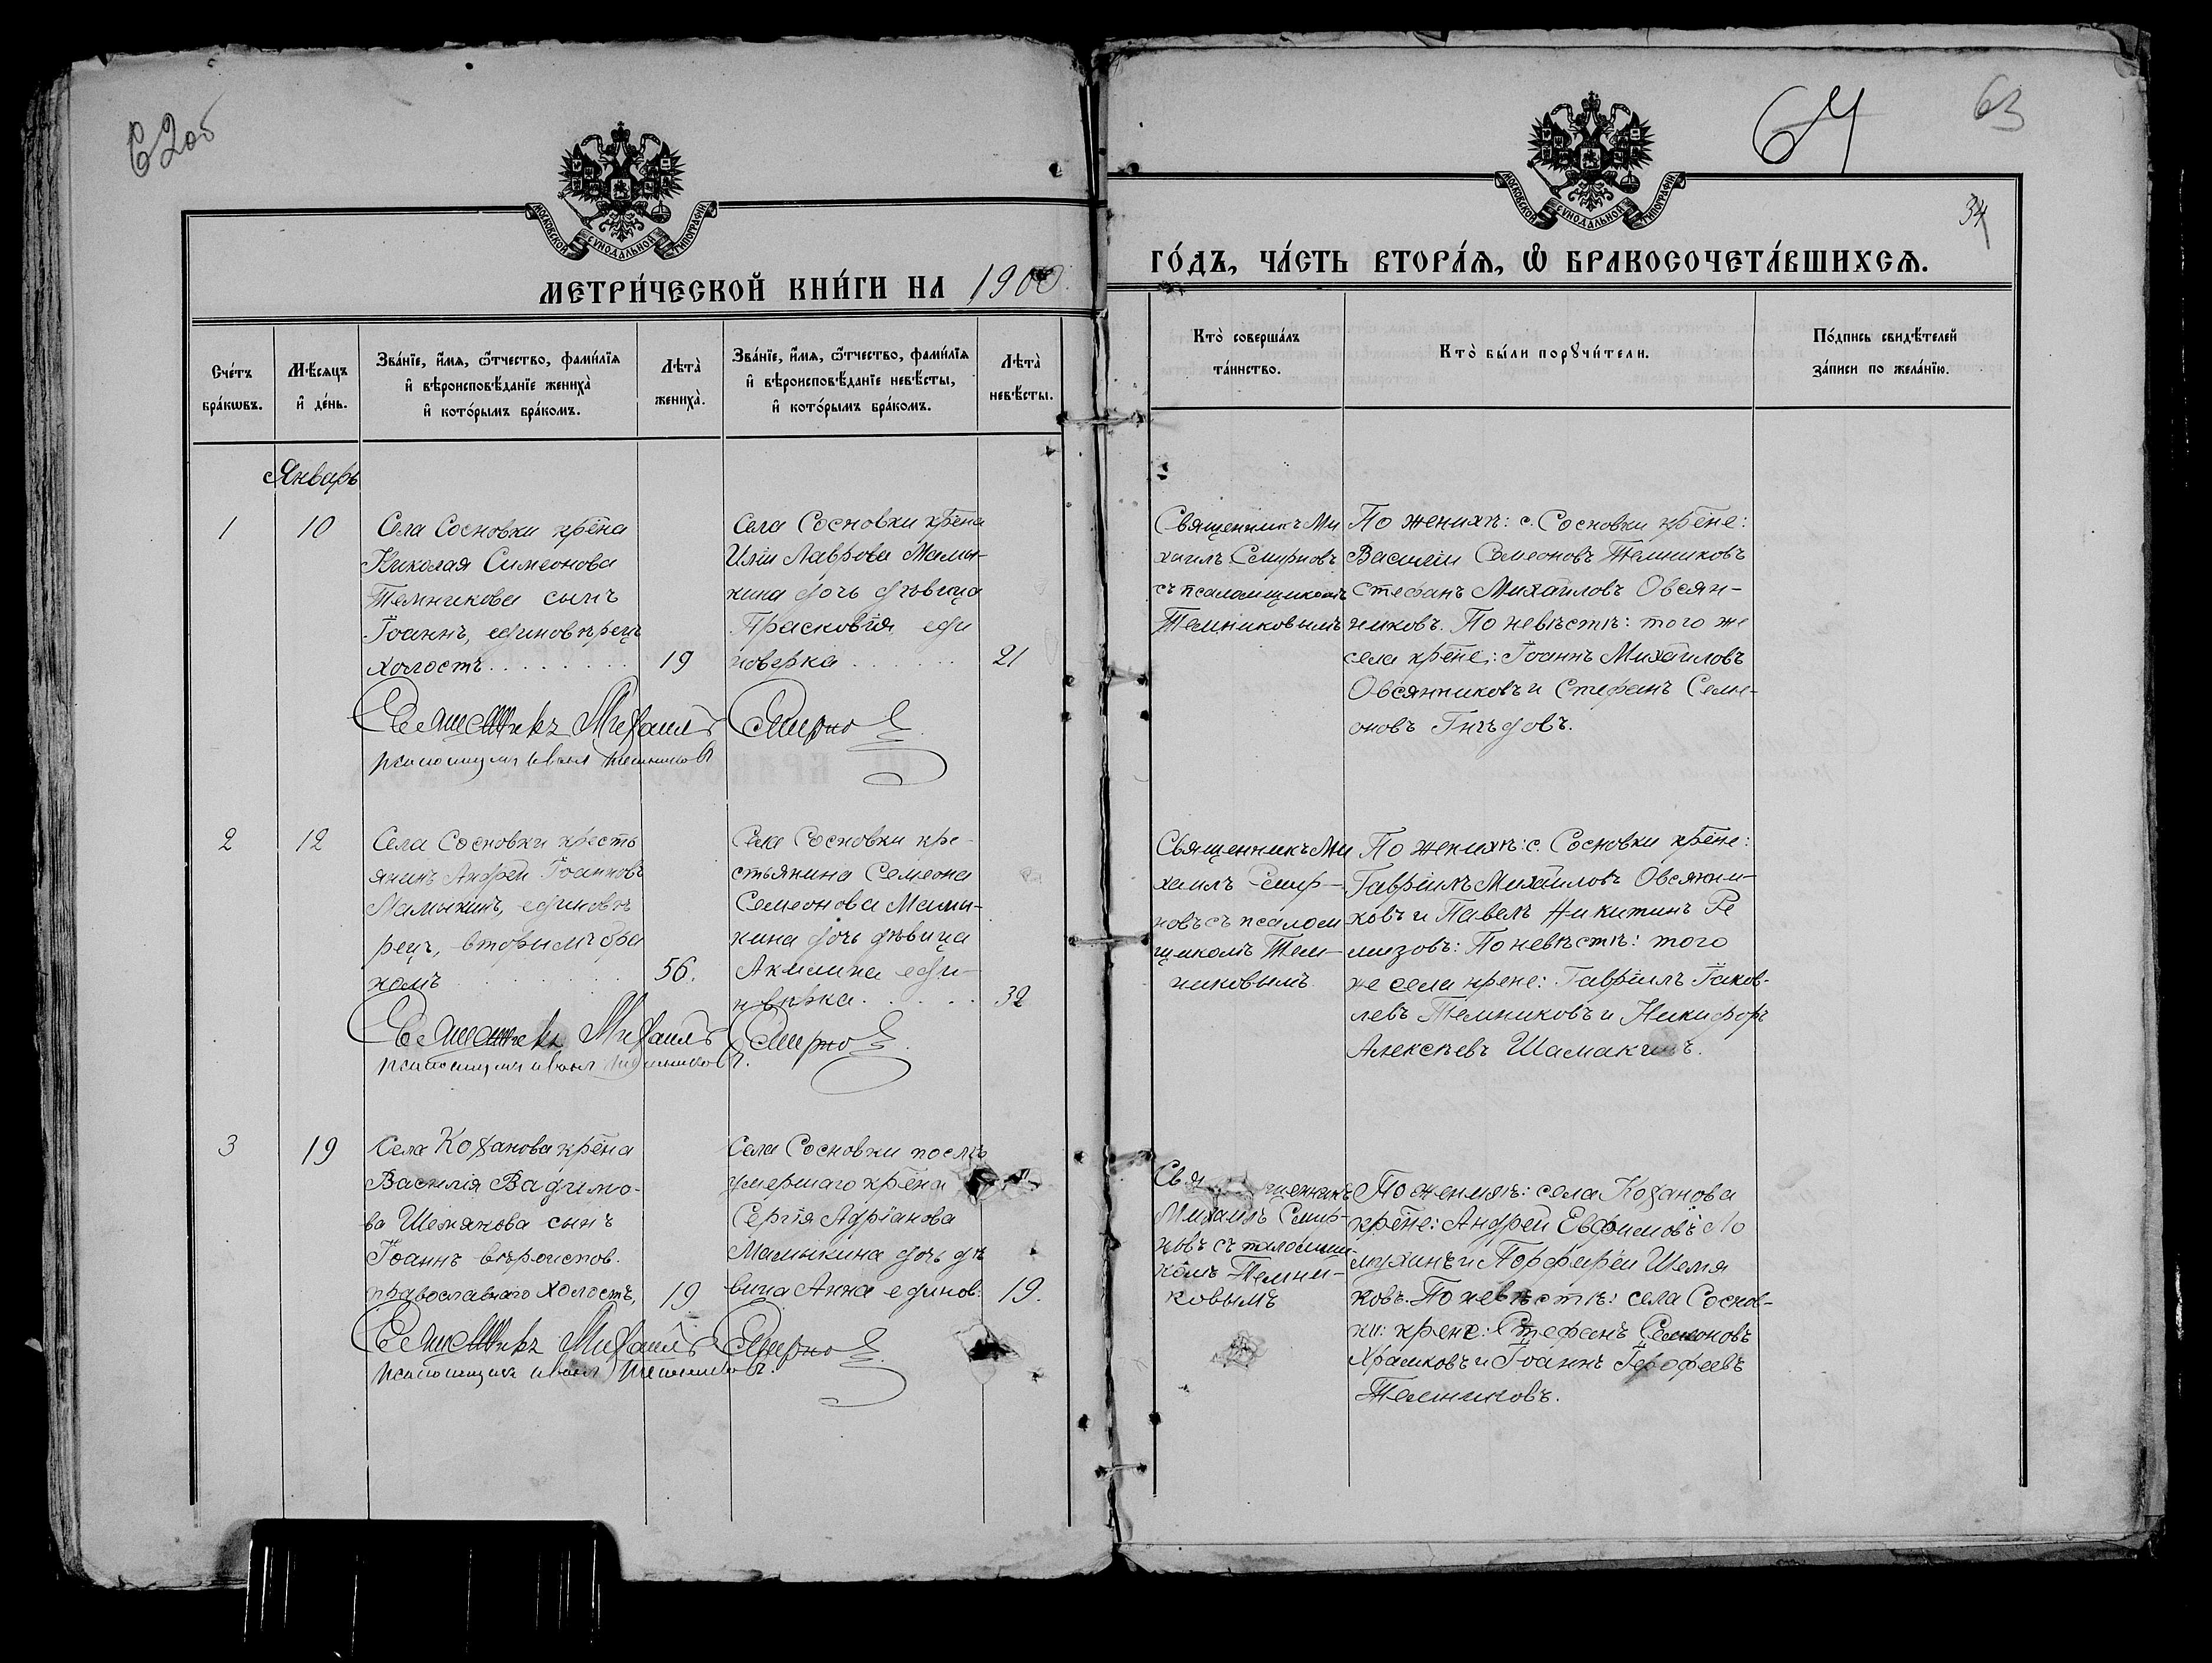 62об
МОСКОВСКОЙ СУНОДАЛЬНОЙ ТИПОГРАФІИ
МЕТРИ́ЧЕСКОЙ КНИ́ГИ НА 1900.
Сче́тъ бра́кѡвъ.
Мѣ́сяцъ и҆ де́нь.
Зва́нїе, и҆́мя, ѻ҆́тчество, фами́лїя и҆ вѣроисповѣ́данїе жениха̀ и҆ кото́рымъ бра́комъ.
Лѣта̀ жениха̀.
Зва́нїе, и҆́мя, ѻ҆́тчество, фами́лїя и҆ вѣроисповѣ́данїе невѣ́сты, и҆ кото́рымъ бра́комъ.
Лѣта̀ невѣ́сты.
Январь
1
10
Села Сосновки крѣна
Николая Симеонова
Темникова сынъ
Іоаннъ, единовѣрецъ
холостъ
19
Села Сосновки крѣна
Иліи Лаврова Мамы-
кина дочь дѣвица
Прасковія еди
новерка
21
Священникъ Михаилъ Смирновъ
псаломщикъ Иванъ Темниковъ
2
12
Села Сосновки кресть
янинъ Андрей Іоанновъ
Мамыкинъ, единовѣ
рецъ, вторымъ бра
комъ
56.
Села Сосновки кре-
стьянина Семеона
Семеонова Мамы-
кина дочь дѣвица
Акилина еди-
новѣрка
32
Священникъ Михаилъ Смирновъ
псаломщикъ Иванъ Темниковъ.
3
19
Села Коданова крѣна
Василія
ва Шемякова сынъ
Іоаннъ вѣроиспов.
православнаго холостъ,
19
Села Сосновки послѣ
умершаго крѣна
Сергія Адріанова
Мамыкина дочь дѣ
вица Анна единов:
19.
Священникъ Михаилъ Смирновъ
псаломщикъ Иванъ Темниковъ.
64
63
34
МОСКОВСКОЙ СУНОДАЛЬНОЙ ТИПОГРАФІИ
ГО́ДЪ, ЧА́СТЬ ВТОРА́Я, Ѡ҆ БРАКОСОЧЕТА́ВШИХСЯ.
Кто̀ соверша́лъ та́инство.
Кто̀ бы́ли порꙋчи́тели.
По́дпись свидѣ́телей за́писи по жела́нїю.
Священникъ Ми
хаилъ Смирновъ
съ псаломщикомъ
Темниковымъ
По женихѣ: с. Сосновки крѣне:
Василій Семеоновъ Темниковъ
Стефанъ Михайловъ Овсян-
никовъ. По невѣстѣ: того же
села крѣне: Іоаннъ Михайловъ
Овсянниковъ и Стефанъ Семе-
оновъ Гнѣдовъ.
Священникъ Ми
хаилъ Смир-
новъ съ псалом
щикомъ Тем-
никовымъ
По женихѣ: с. Сосновки крѣне:
Гавріилъ Михайловъ Овсянни-
ковъ и Павелъ Никитинъ Ре
мизовъ: По невѣстѣ: того
же села крѣне: Гавріилъ Іаков-
левъ Темниковъ и Никифоръ
Алексѣевъ Шамакинъ.
Священникъ
Михаилъ Смир-
новъ съ псаломщи-
комъ Темни-
ковымъ
По женихѣ: села Коданова
крѣне: Андрей Евфимовъ Ло
мухинъ и Порфирій Шемя
ковъ. По невѣстѣ: села Соснов-
ки: крѣне: Стефанъ Семеоновъ
Храмковъ и Іоаннъ Іерофеевъ
Темниковъ.